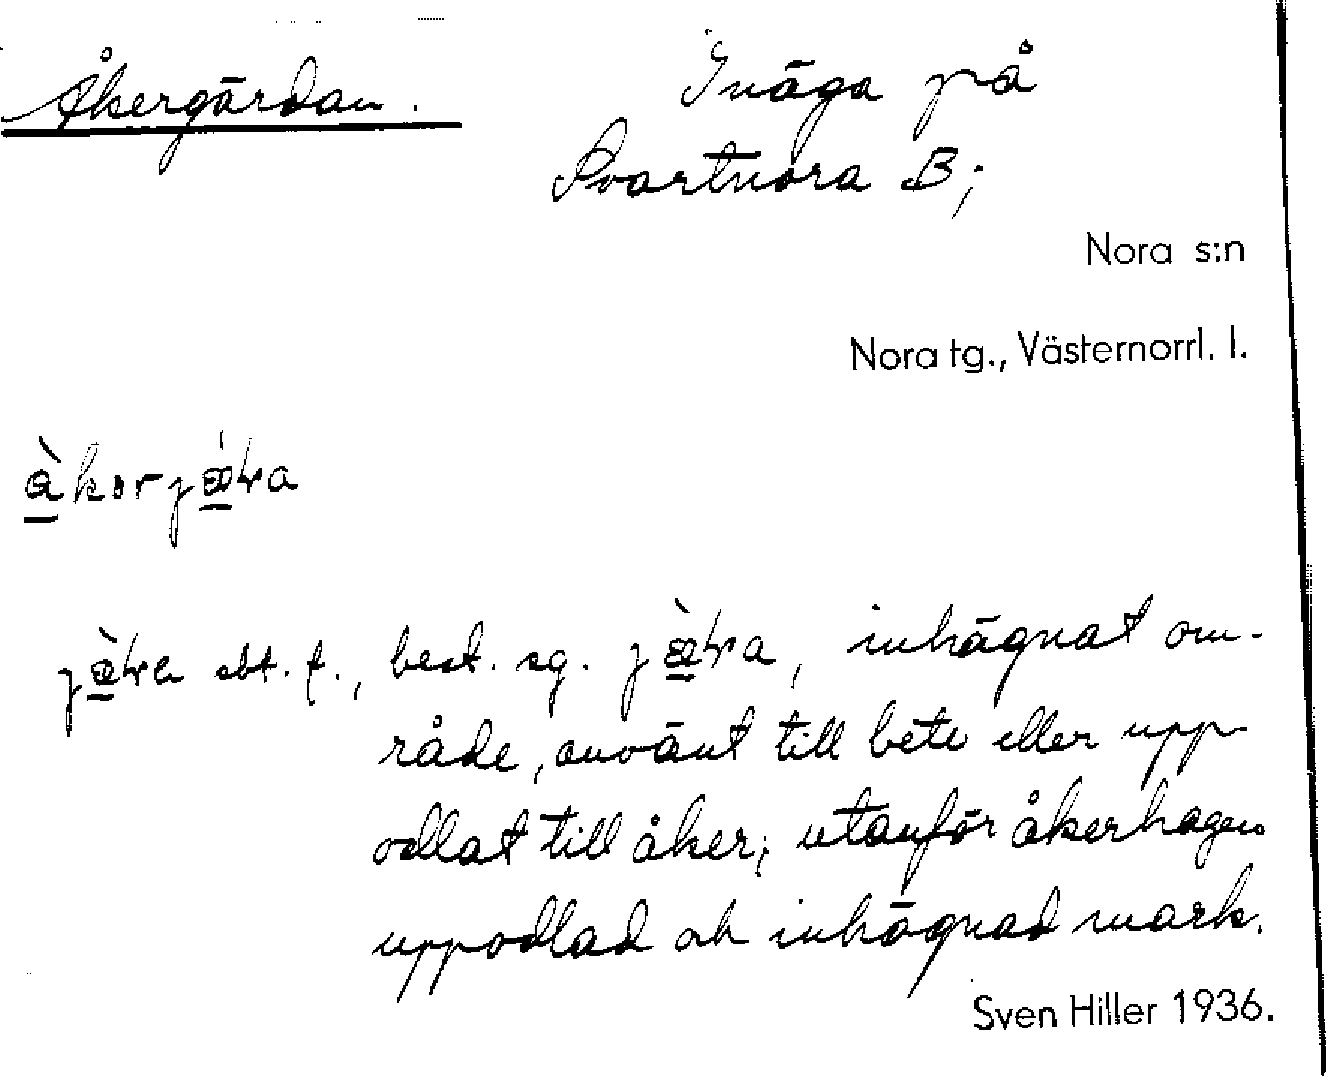 Åkergärdan.
Inäga på
Svartnora B;
Nora s:n
Nora tg., Västernorrl. l.
best. sg.
inhägnat om-
råde, använt till bete eller upp-
odlat till åker; utanför åkerhagen
uppodlad och inhägnad mark.
Sven Hiller 1936.